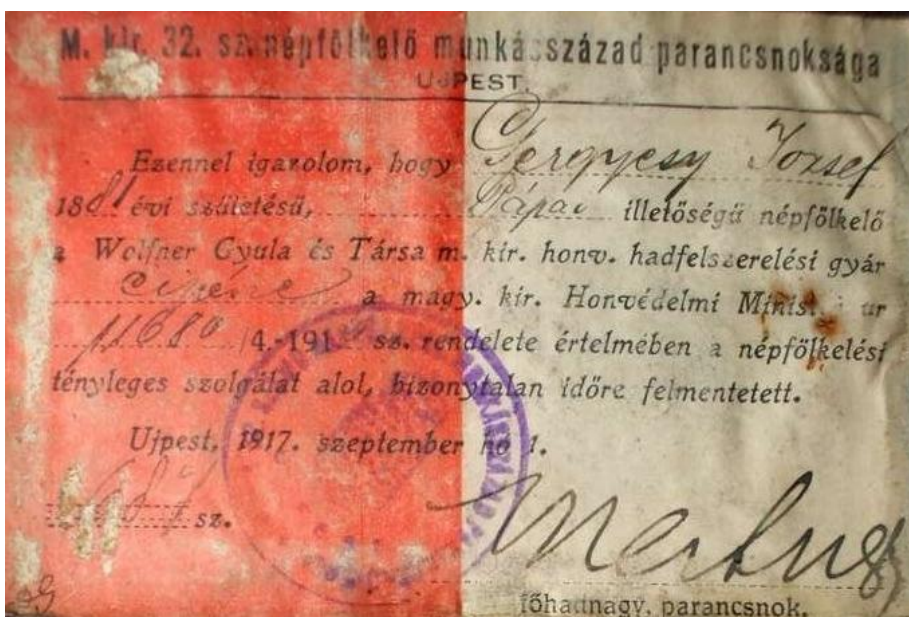 M. kir. 32. sz. népfölkelő munkásszázad parancsnoksága
UJPEST.
Ezennel igazolom, hogy Gergyesy József
1881 évi születésü, Pápai illetőségü népfölkelő
a Wolfner Gyula és Társa m. kir. honv. hadfelszerelési gyár
a magy. kir. Honvédelmi Minist. ur
11680 /4.-191 sz. rendelete értelmében a népfölkelési
tényleges szolgálat alol, bizonytalan időre felmentetett.
Ujpest, 1917. szeptember hó 1.
sz.
főhadnagy, parancsnok.